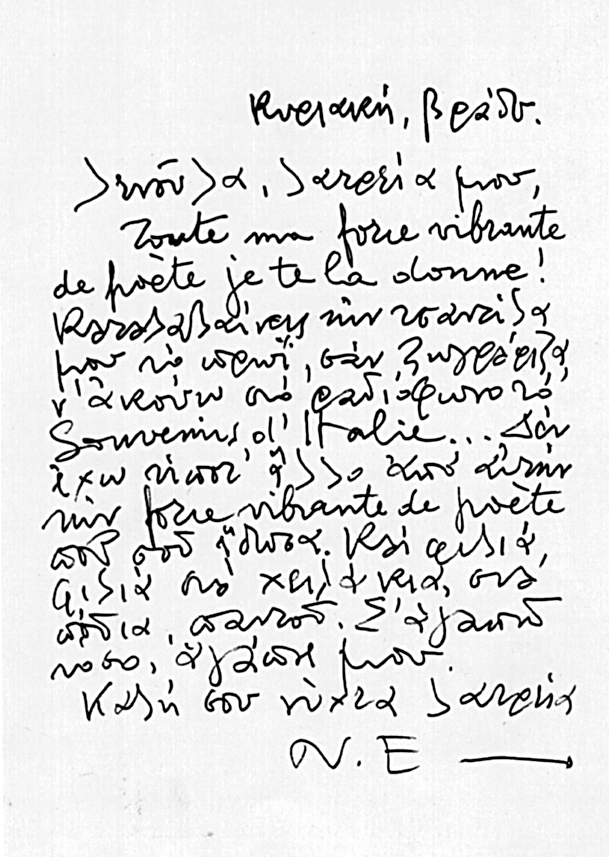 Κυριακή, βράδυ.
Λενοῦλα, λατρεία μου,
Toute ma force vibrante
de poète je te la donne!
Καταλαβαίνεις τὴν τσαντίλα
μου τὸ πρωΐ, σὰν ζωγράφιζα,
ν' ἀκούω στὸ ραδιόφωνο τό,
Souvenirs d'Italie... Δὲν
ἔχω τίποτ' ἄλλο ἀπὸ αὐτὴν
τὴν force vibrante de poète
ποῦ σοῦ ἔδωσα. Καὶ φιλιά,
φιλιὰ στὰ χειλάκια, στὰ
πόδια, παντοῦ. Σ' ἀγαπῶ
τόσο, ἀγάπη μου.
Καλή σου νύχτα λατρεία
Ν.Ε